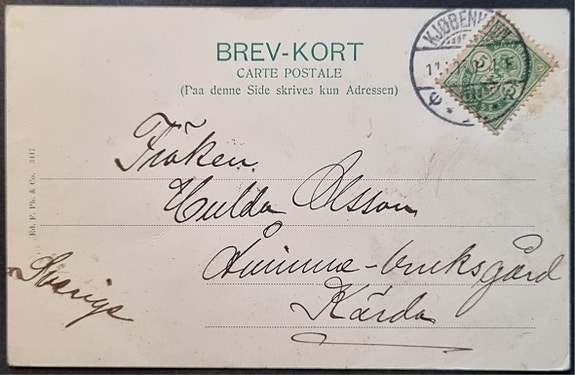 BREV-KORT
CARTE POSTALE
(Paa denne Side skrives kun Adressen)
KJØBENHAVN
11
Fröken
Hulda Olsson
bruksgård
Kärda
Sverige
Ed. F. Ph. & Co. 3117